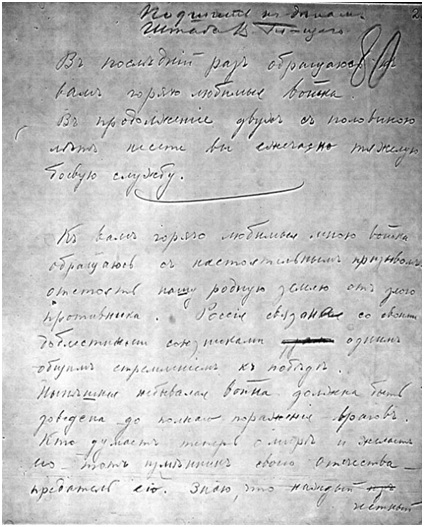 Въ послѣдній разъ обращаюсь къ
вамъ горячо любимыя войска.
Въ продолженіе двухъ съ половиною
лѣтъ несете вы ежечасно тяжелую
боевую службу.
Къ вамъ горячо любимыя мною войска
обращаюсь съ настоятельнымъ призывомъ
отстоять нашу родную землю отъ злого
противника. Россія связана со своими
доблестными союзниками однимъ
общимъ стремленіемъ къ побѣдѣ.
Нынѣшняя небывалая война должна быть
доведена до полнаго пораженія враговъ.
Кто думаетъ теперь о мирѣ и желаетъ
его – тотъ измѣнникъ своего отечества –
предатель его. Знаю, что каждый
честный